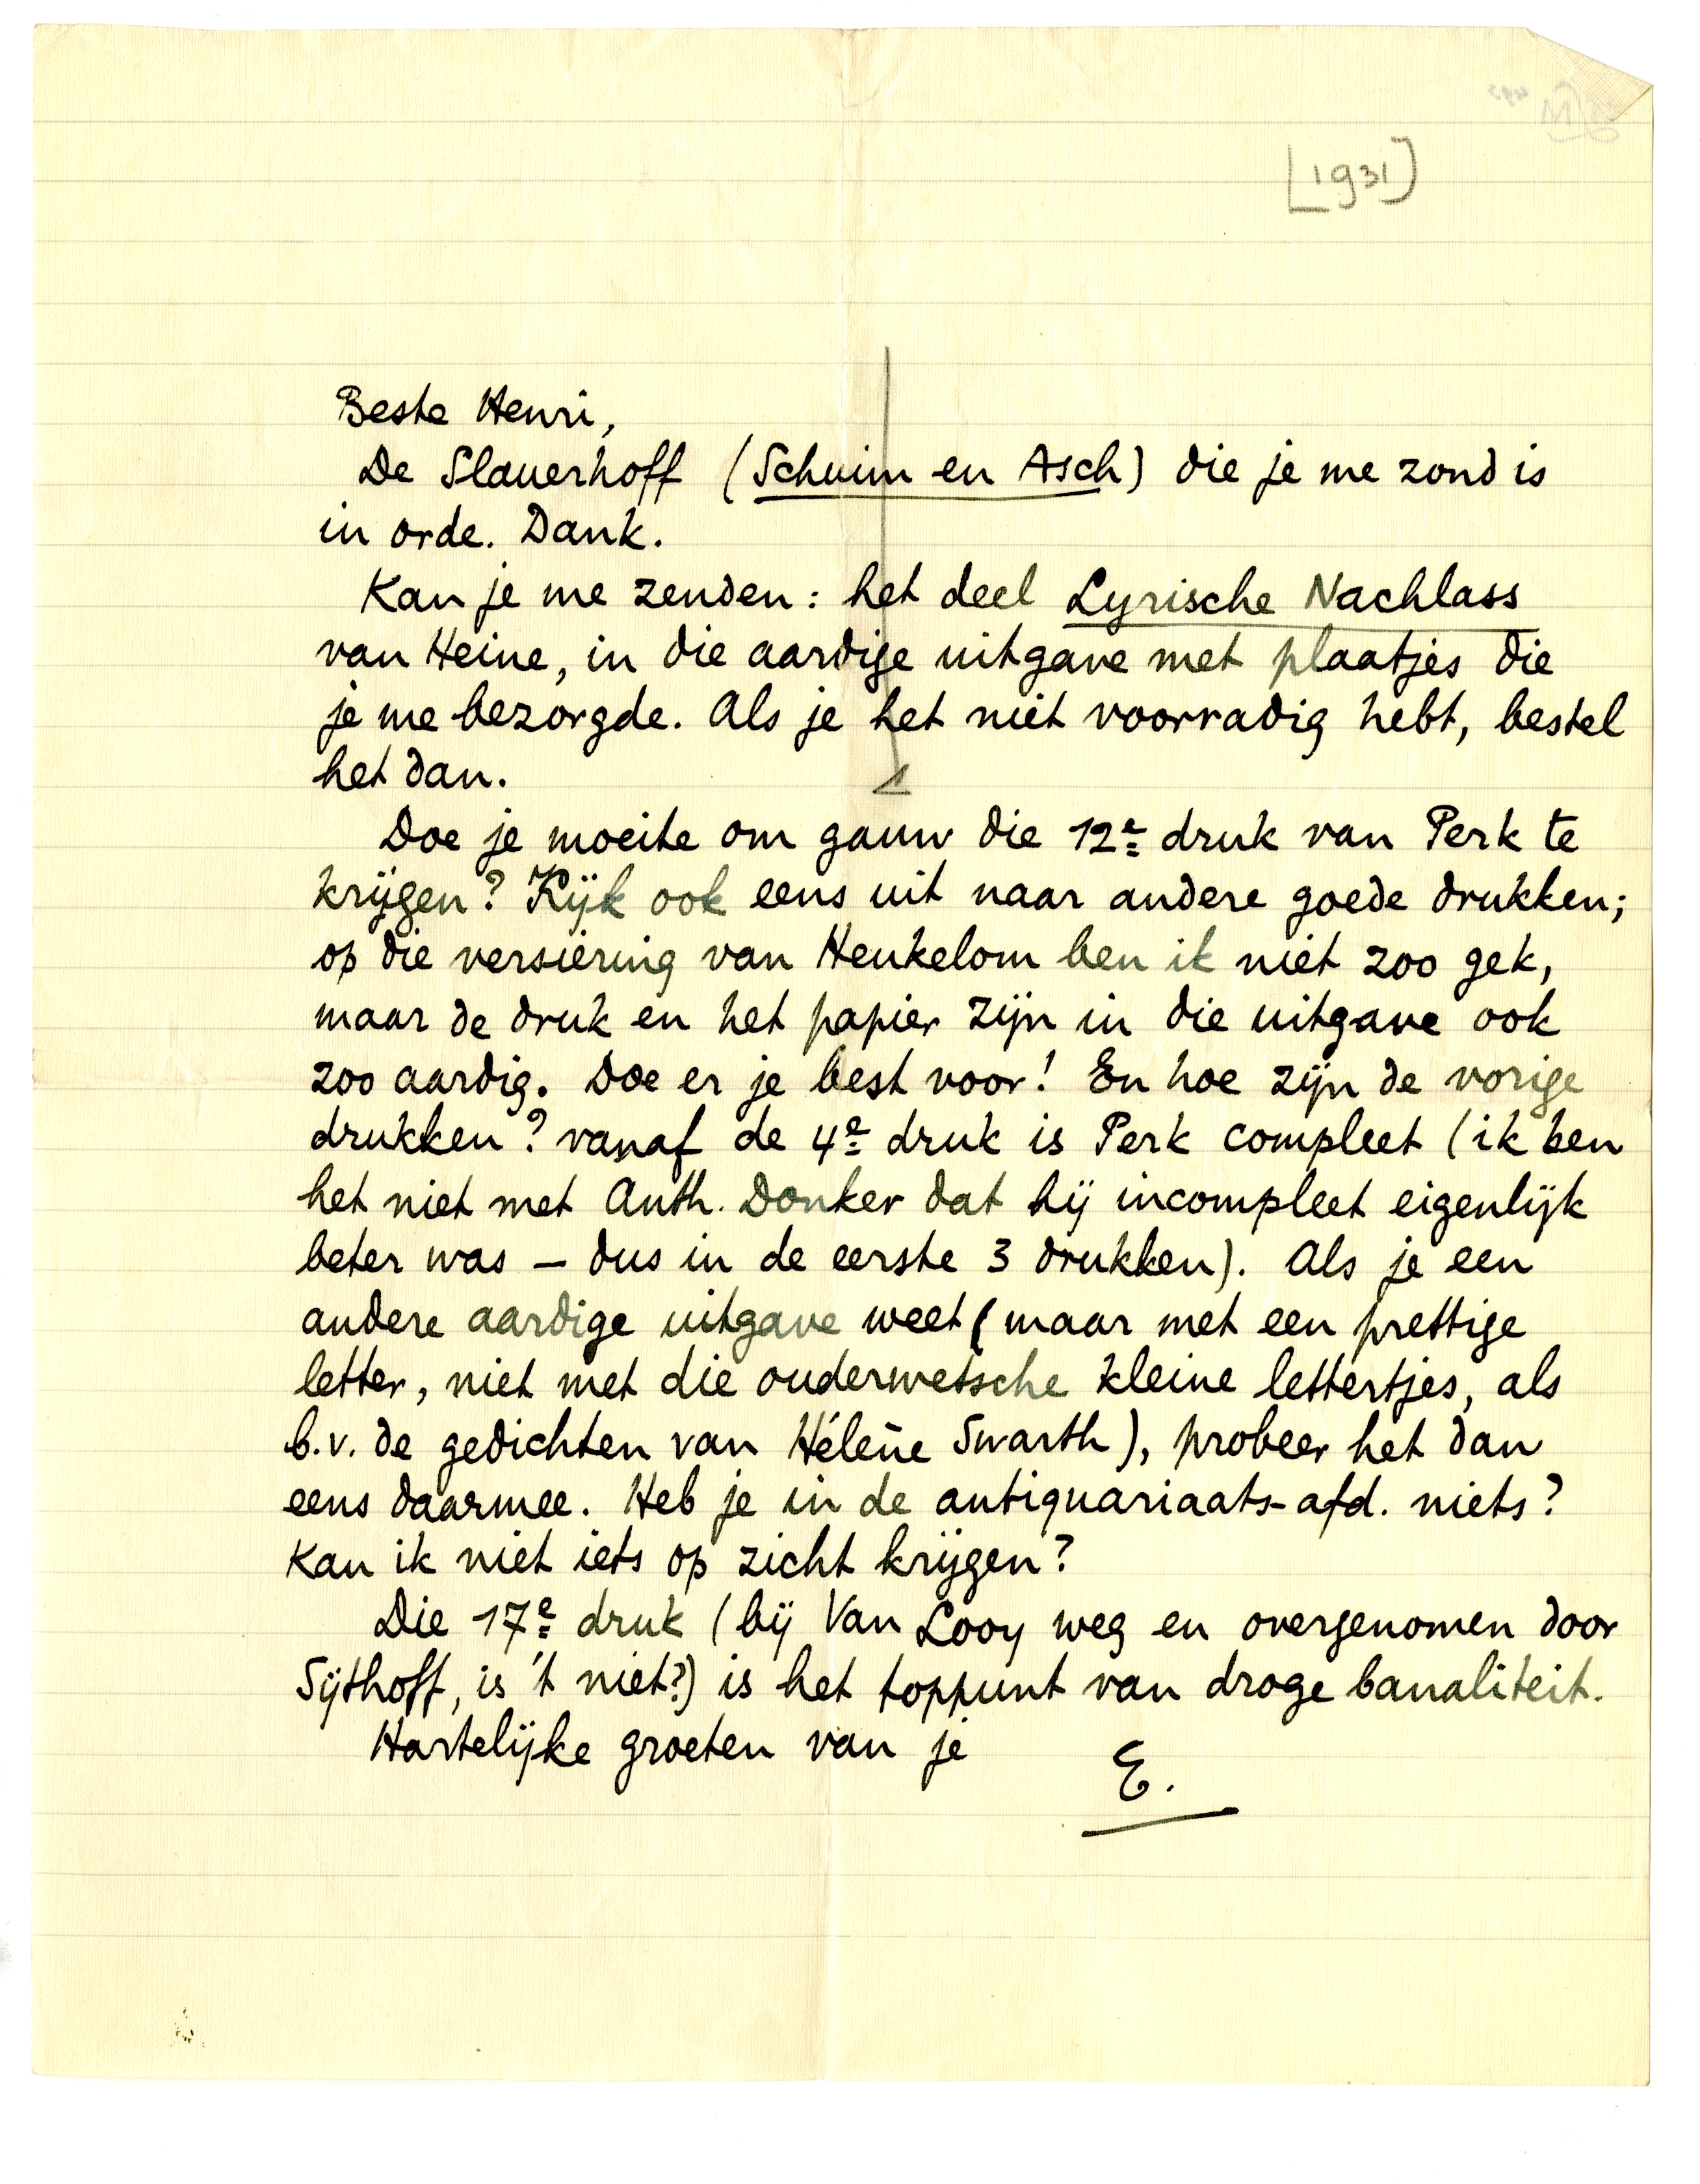 [1931]
Beste Henri,
De Slauerhoff (Schuim en Asch) die je me zond is
in orde. Dank.
Kan je me zenden: het deel Lyrische Nachlass
van Heine, in die aardige uitgave met plaatjes die
je me bezorgde. Als je het niet voorradig hebt, bestel
het dan.
Doe je moeite om gauw die 12e druk van Perk te
krijgen? Kijk ook eens uit naar andere goede drukken;
op die versiering van Heukelom ben ik niet zoo gek,
maar de druk en het papier zijn in die uitgave ook
zoo aardig. Doe er je best voor! En hoe zijn de vorige
drukken? vanaf de 4e druk is Perk compleet (ik ben
het niet met Anth. Donker dat hij incompleet eigenlijk
beter was – dus in de eerste 3 drukken). Als je een
andere aardige uitgave weet (maar met een prettige
letter, niet met die ouderwetsche kleine lettertjes, als
b.v. de gedichten van Hélène Swarth), probeer het dan
eens daarmee. Heb je in de antiquariaats-afd. niets?
Kan ik niet iets op zicht krijgen?
Die 17e druk (bij Van Looy weg en overgenomen door
Sijthoff, is 't niet?) is het toppunt van droge banaliteit.
Hartelijke groeten van je
E.